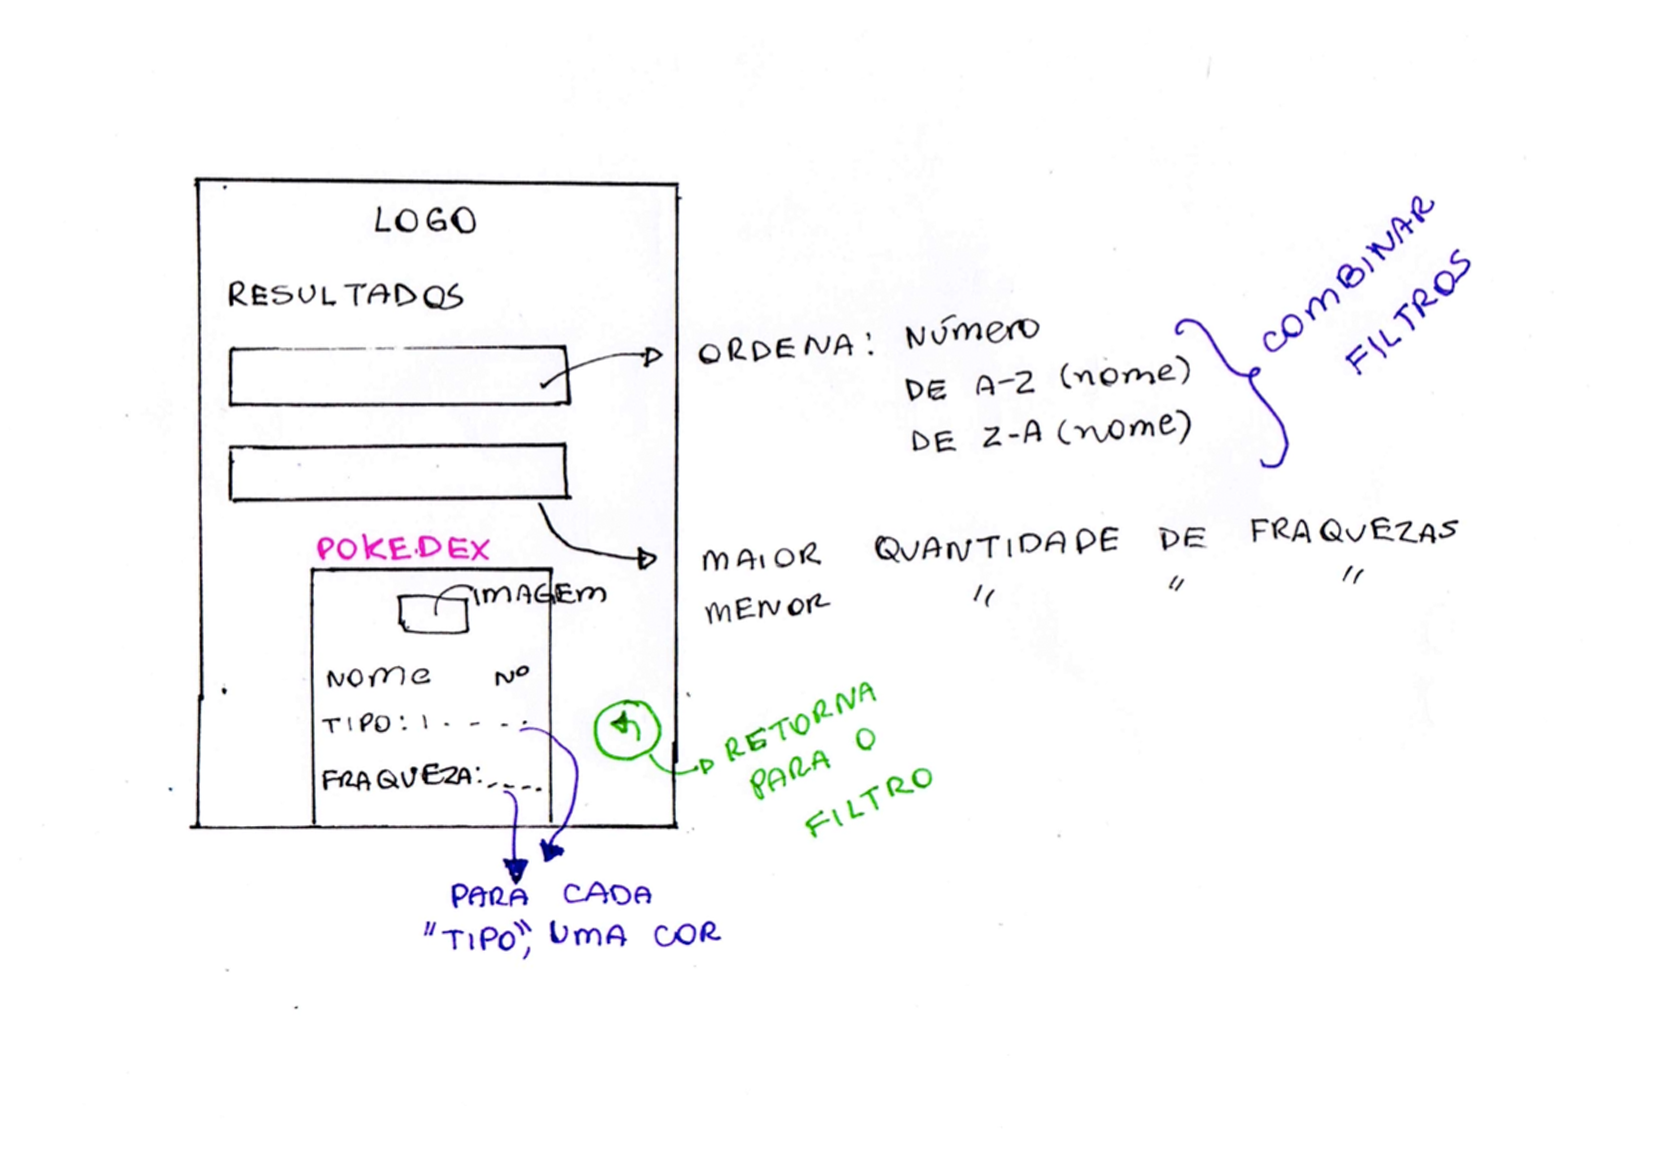 LOGO
RESULTADOS
ORDENA: NÚMERO
DE A-Z (nome)
DE Z-A (nome)
COMBINAR
FILTROS
MAIOR QUANTIDADE DE FRAQUEZAS
MENOR " " "
POKEDEX
IMAGEM
NOME Nº
TIPO: | . - - - .
FRAQUEZA: - - - - .
RETORNA
PARA O
FILTRO
PARA CADA
"TIPO", UMA COR